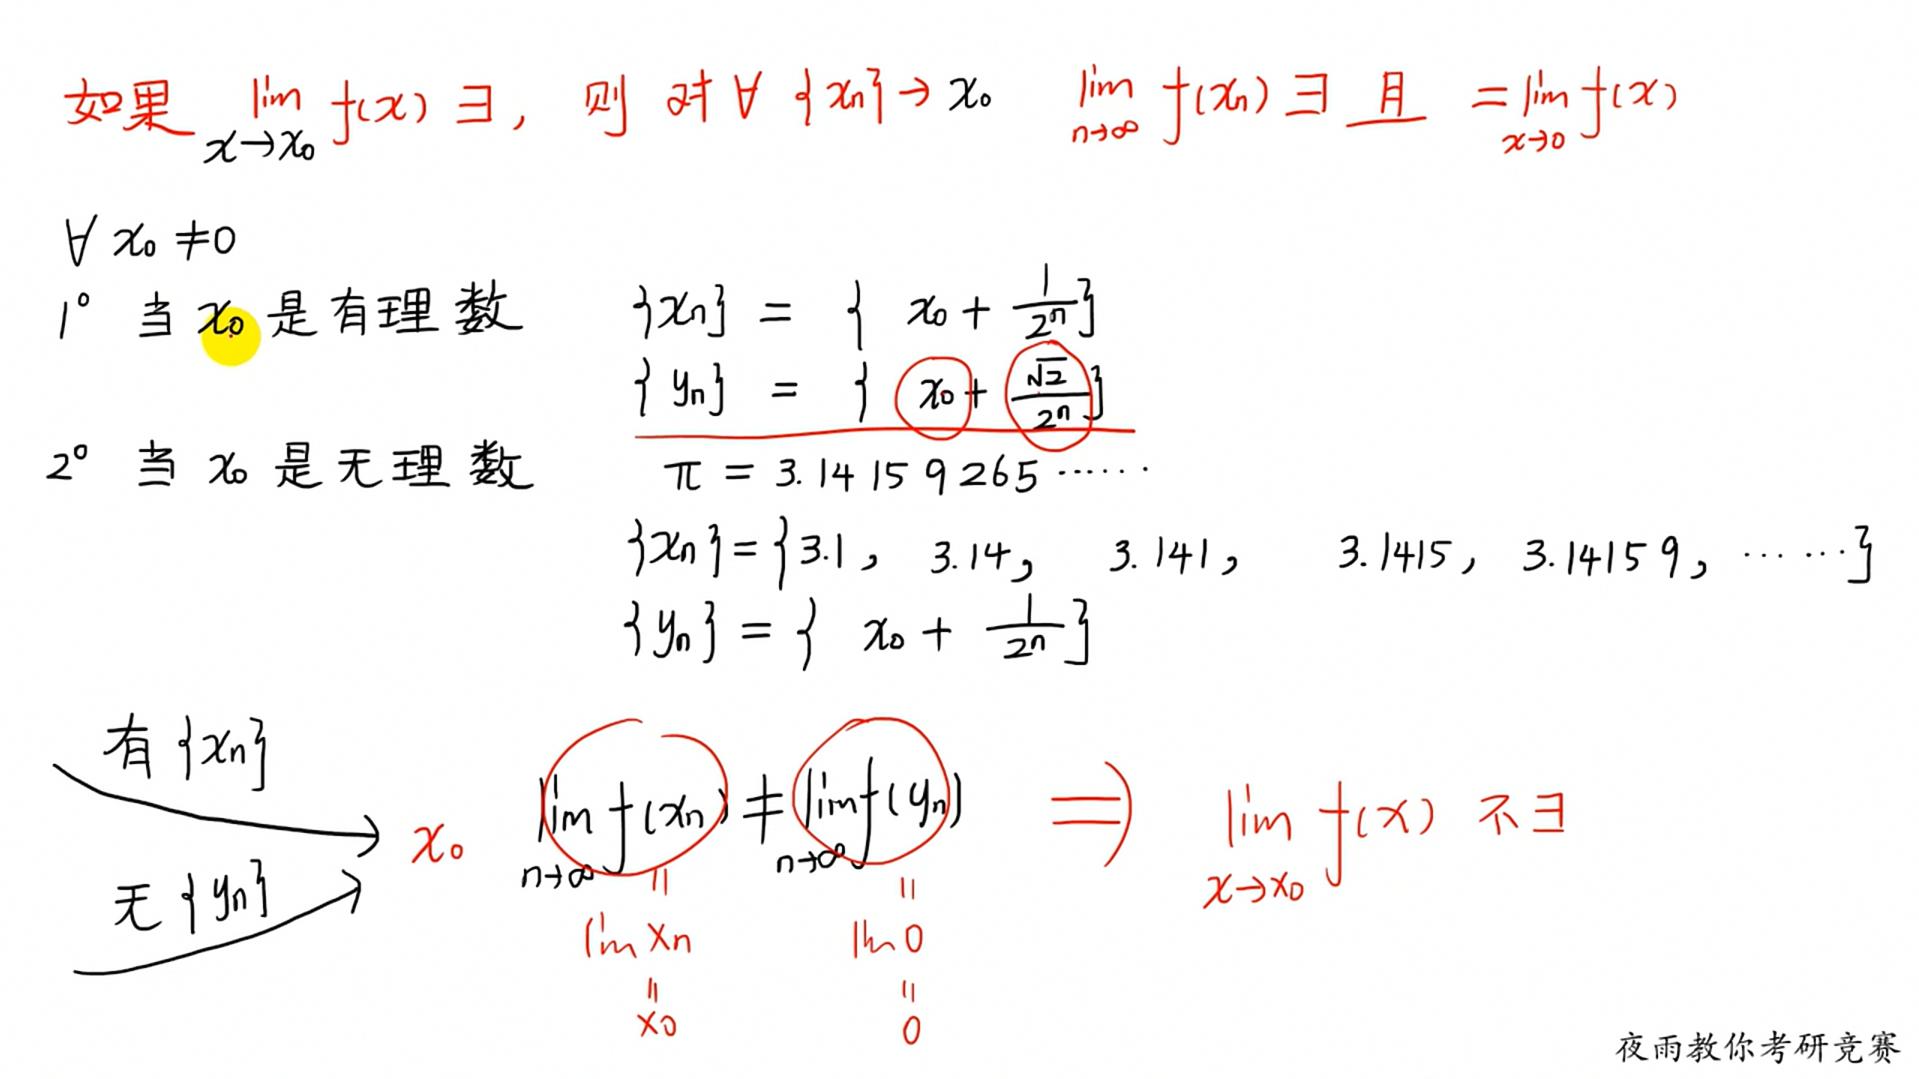 如果 lim x→x₀ f(x) ∃, 则 对 ∀ {xₙ} → x₀ lim n→∞ f(xₙ) ∃ 且 = lim x→0 f(x)
∀ x₀ ≠ 0
1° 当 x₀ 是有理数 {xₙ} = { x₀ + 1/2ⁿ }
{yₙ} = { x₀ + √2/2ⁿ }
2° 当 x₀ 是无理数 π = 3.14159265······
{xₙ} = {3.1, 3.14, 3.141, 3.1415, 3.14159, ······}
{yₙ} = { x₀ + 1/2ⁿ }
有 {xₙ}
无 {yₙ}
x₀ lim n→∞ f(xₙ) ≠ lim n→∞ f(yₙ) ⇒ lim x→x₀ f(x) 不∃
= =
lim xₙ lim 0
= =
x₀ 0
夜雨教你考研竞赛